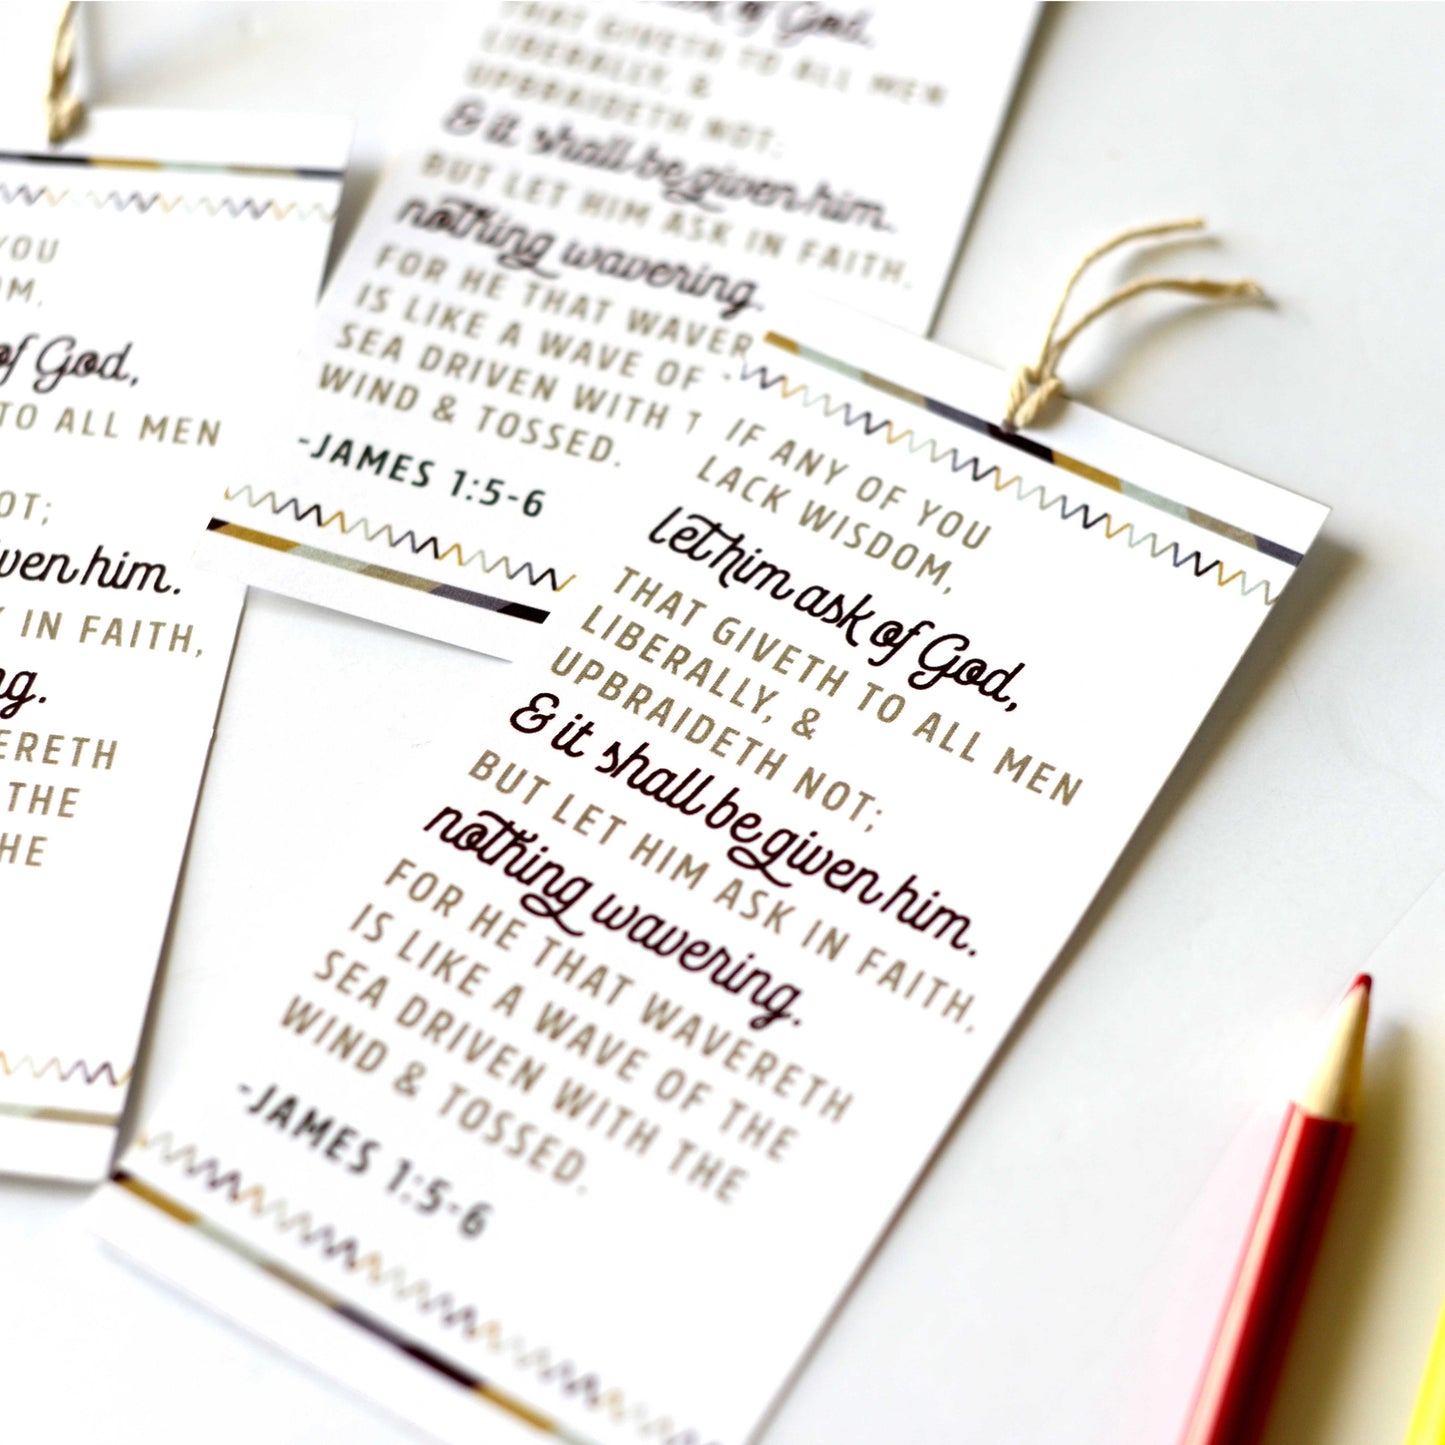 of God,
THAT GIVETH TO ALL MEN
LIBERALLY, &
UPBRAIDETH NOT;
& it shall be given him.
BUT LET HIM ASK IN FAITH,
nothing wavering.
FOR HE THAT WAVER
IS LIKE A WAVE OF
SEA DRIVEN WITH T
WIND & TOSSED.
-JAMES 1:5-6
YOU
OM,
of God,
TO ALL MEN
OT;
ven him.
K IN FAITH,
ng.
ERETH
THE
HE
IF ANY OF YOU
LACK WISDOM,
let him ask of God,
THAT GIVETH TO ALL MEN
LIBERALLY, &
UPBRAIDETH NOT;
& it shall be given him.
BUT LET HIM ASK IN FAITH,
nothing wavering.
FOR HE THAT WAVERETH
IS LIKE A WAVE OF THE
SEA DRIVEN WITH THE
WIND & TOSSED.
-JAMES 1:5-6